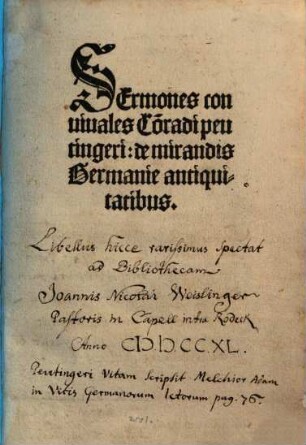 SErmones con
uiuales Cõradi peu
tingeri: de mirandis
Germanie antiqui-
tatibus.
Libellus hicce rarissimus spectat
ad Bibliothecam
Joannis Nicolai Weislinger
Pastoris in Capell infra Rodeck
Anno CIƆ.IƆ.CC.XL.
Peutingeri Vitam scripsit Melchior Adam
in Vitis Germanorum Ictorum pag. 76.